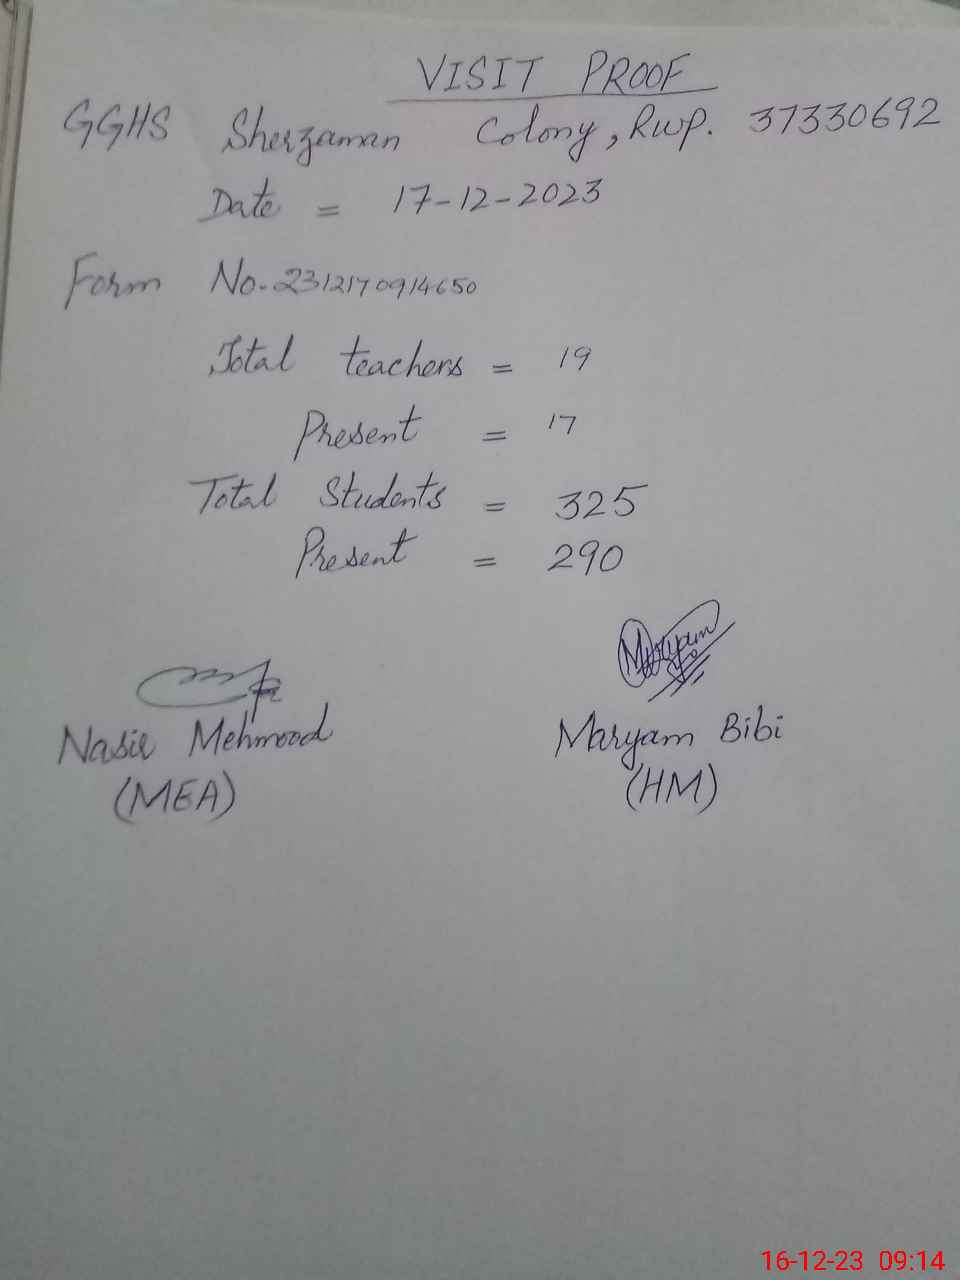 VISIT PROOF
GGHS Sherzaman Colony, Rwp. 37330692
Date = 17-12-2023
Form No. 2312170914650
Total teachers = 19
Present = 17
Total Students = 325
Present = 290
Maryam
Nasir Mehmood
Maryam Bibi
(MEA)
(HM)
16-12-23 09:14